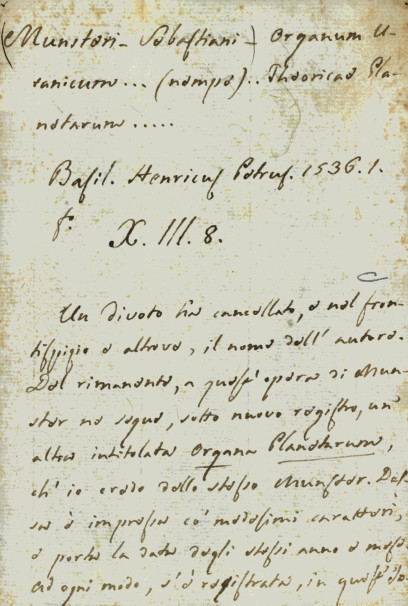 (Munsteri - Sebastiani - Organum U-
ranicum... (nempe).. Theoricae Pla-
netarum.....
Basil. Henricus Petrus. 1536. 1.
f.°
X. III. 8.
Un divoto ha cancellato, e nel fron-
tispizio e altrove, il nome dell' autore.
Del rimanente, a quest' opera di Mun-
ster ne segue, sotto nuovo registro, un'
altra intitolata Organa Planetarum,
ch' io credo dello stesso Munster. Des-
sa è impressa co' medesimi caratteri,
e porta la data degli stessi anno e mese
Ad ogni modo, s' è registrata, in quest'